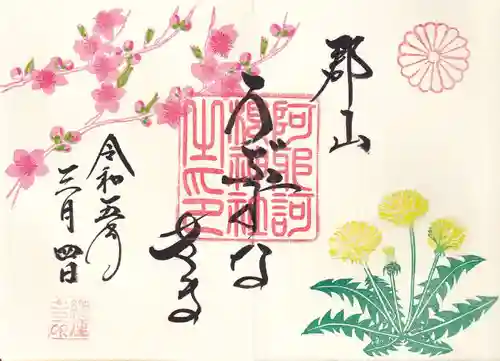 郡山
うぶすな
さま
阿邪訶
根神社
之印
令和五年
三月四日